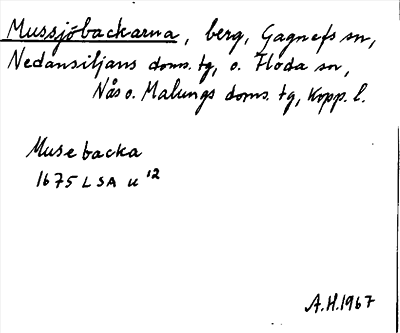 Mussjöbackarna, berg, Gagnefs sn,
Nedansiljans doms. tg, o. Floda sn,
Nås o. Malungs doms. tg, Kopp. l.
Musebacka
1675 LSA u 12
A.H. 1967